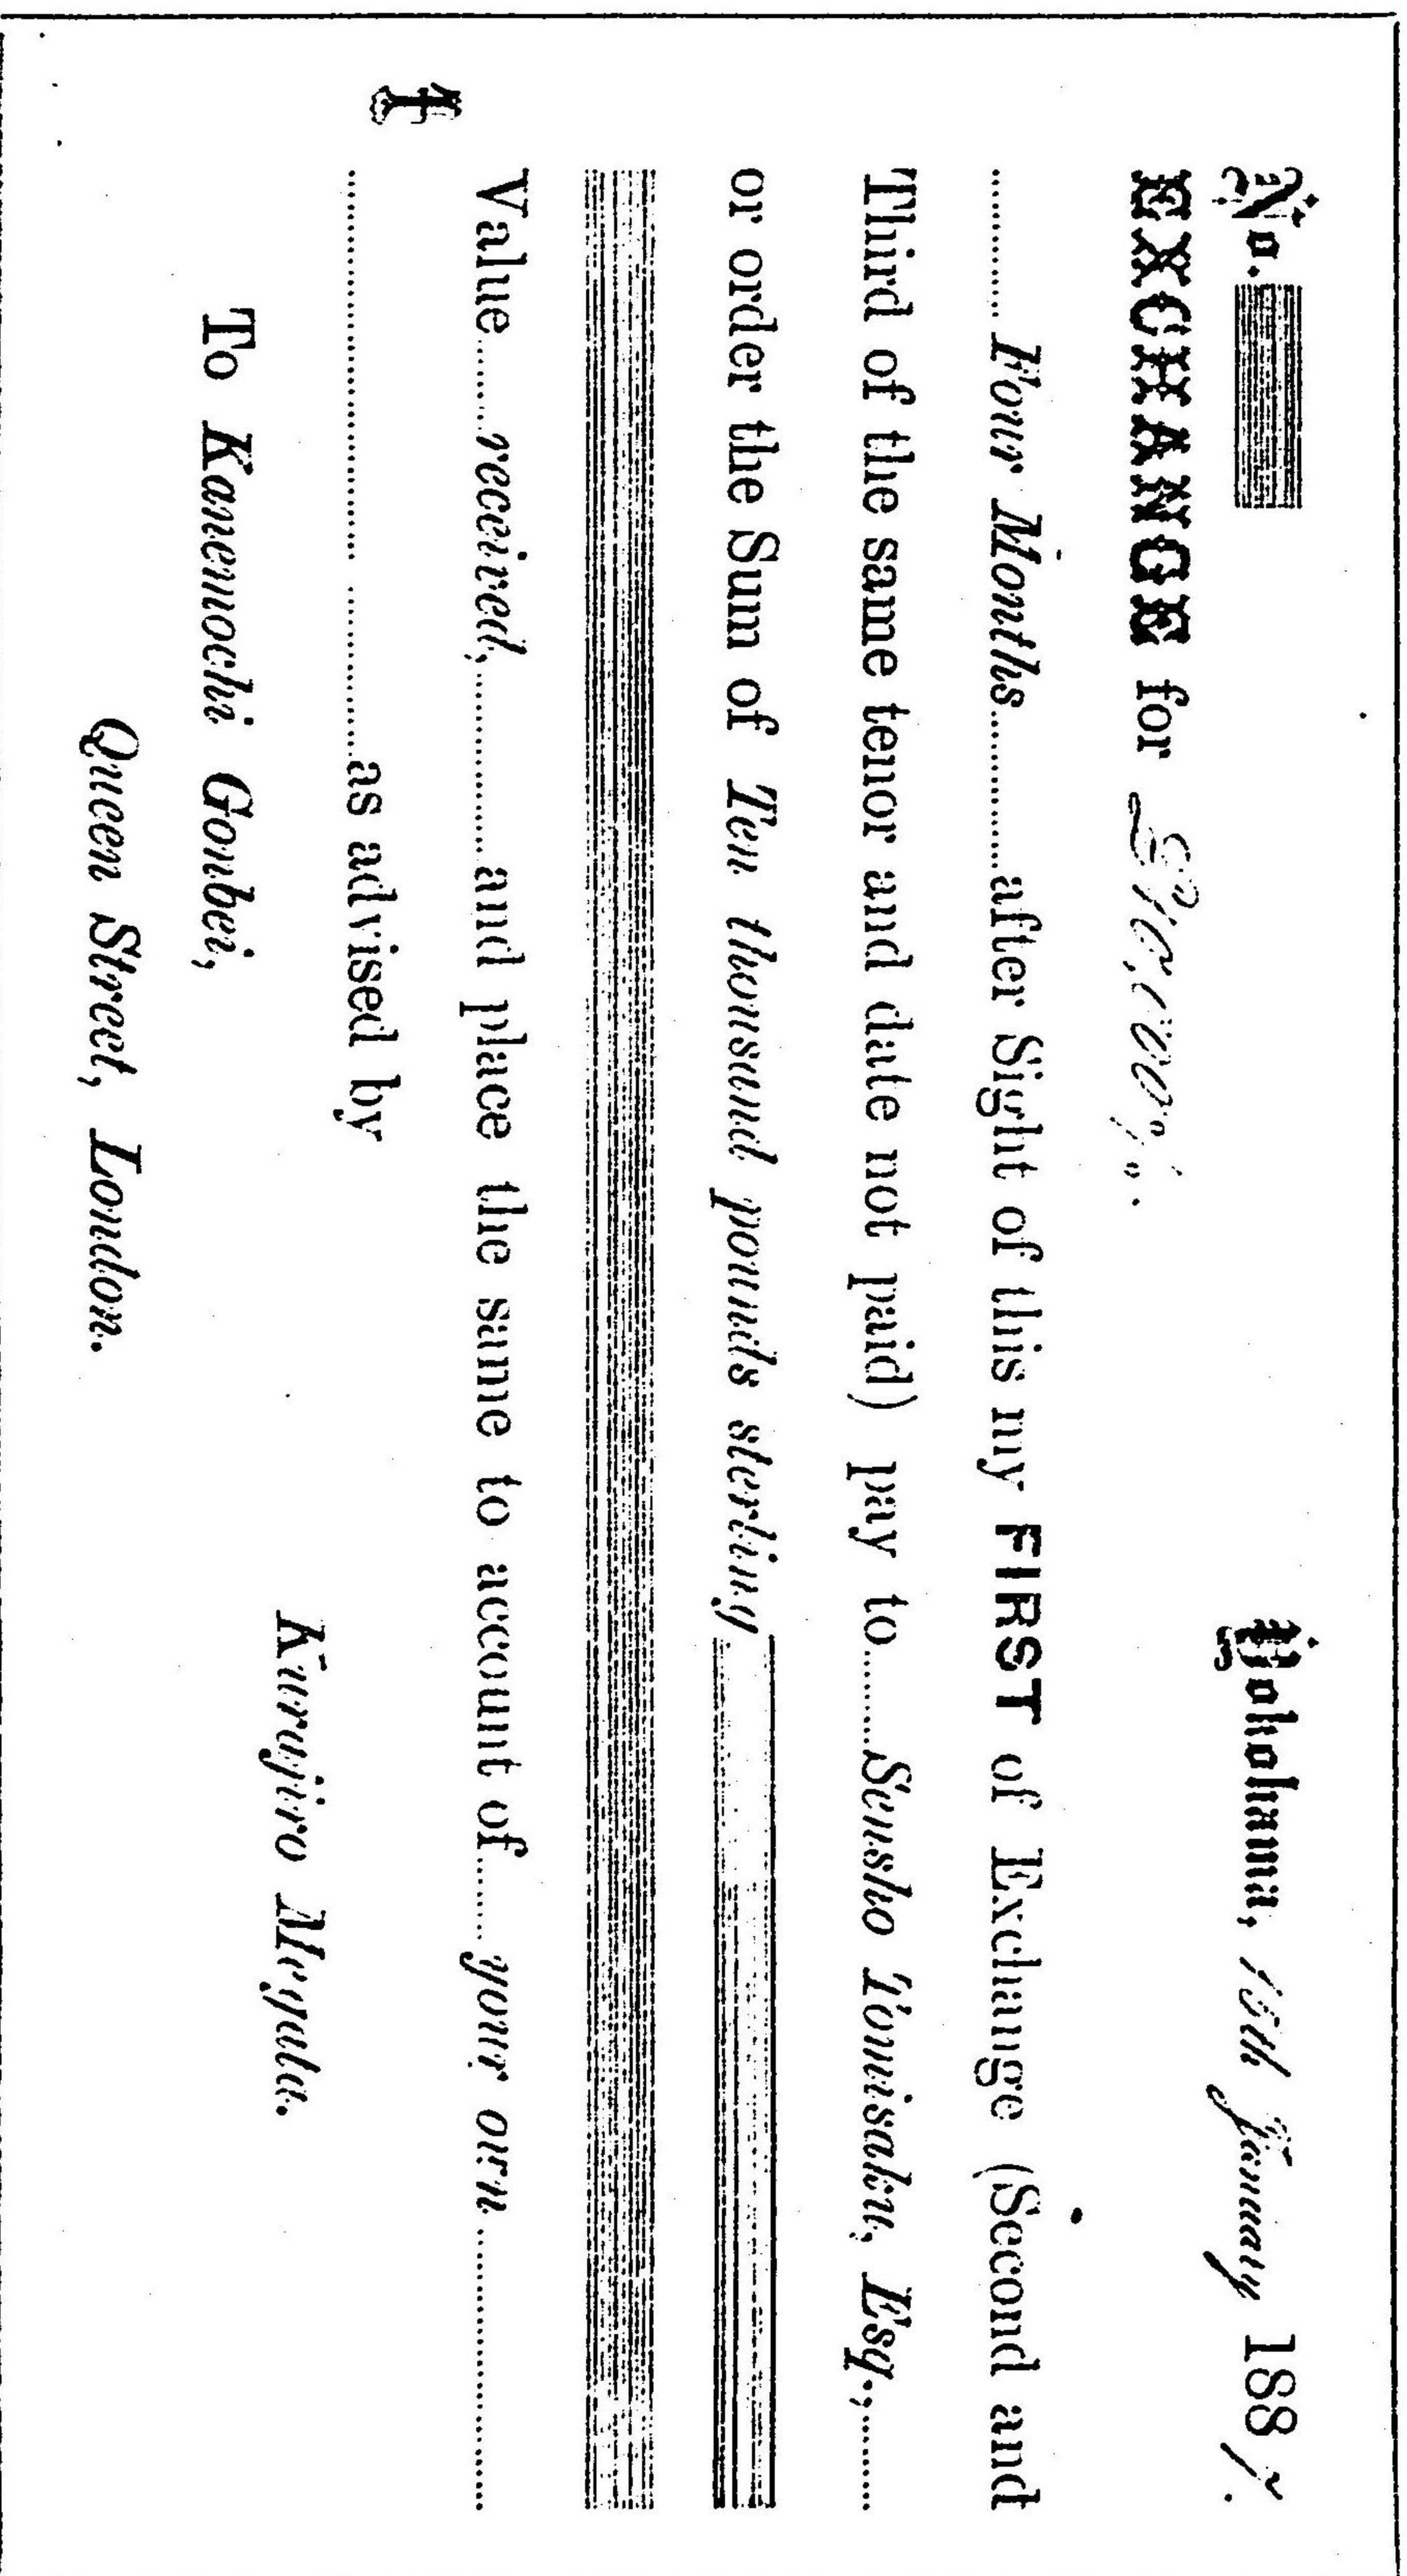 No. Yokohama, 15th January 1887.
EXCHANGE for £10,000,,
Four Months after Sight of this my FIRST of Exchange (Second and
Third of the same tenor and date not paid) pay to Sensho Tomisaku, Esq.,
or order the Sum of Ten thousand pounds sterling
1
Value received, and place the same to account of your own
as advised by
Kurajiro Megata.
To Kanemochi Gonbei,
Queen Street, London.